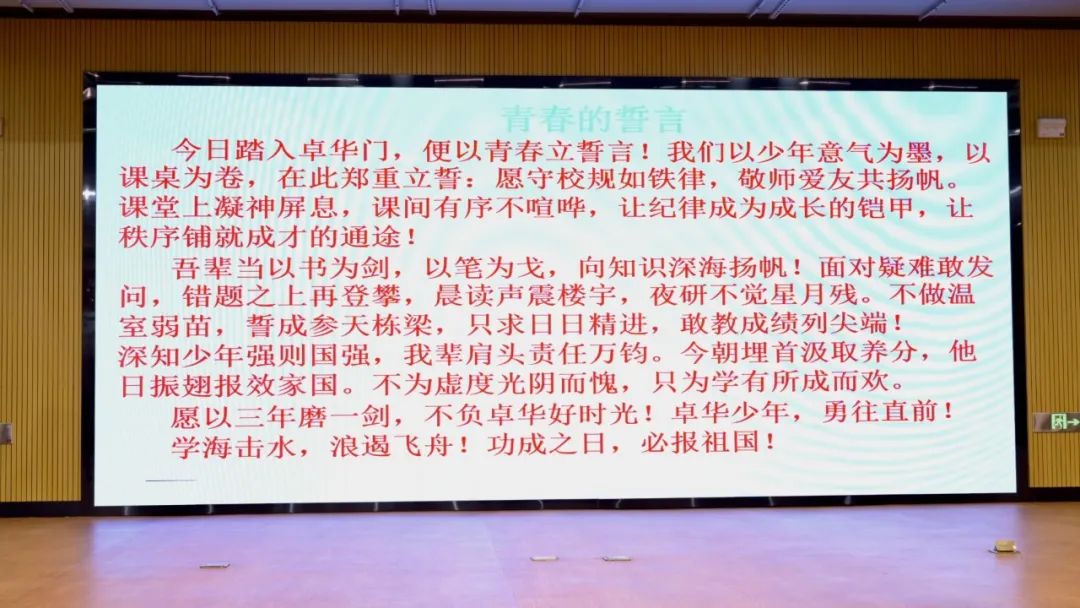 青春的誓言
今日踏入卓华门，便以青春立誓言！我们以少年意气为墨，以
课桌为卷，在此郑重立誓：愿守校规如铁律，敬师爱友共扬帆。
课堂上凝神屏息，课间有序不喧哗，让纪律成为成长的铠甲，让
秩序铺就成才的通途！
吾辈当以书为剑，以笔为戈，向知识深海扬帆！面对疑难敢发
问，错题之上再登攀，晨读声震楼宇，夜研不觉星月残。不做温
室弱苗，誓成参天栋梁，只求日日精进，敢教成绩列尖端！
深知少年强则国强，我辈肩头责任万钧。今朝埋首汲取养分，他
日振翅报效家国。不为虚度光阴而愧，只为学有所成而欢。
愿以三年磨一剑，不负卓华好时光！卓华少年，勇往直前！
学海击水，浪遏飞舟！功成之日，必报祖国！